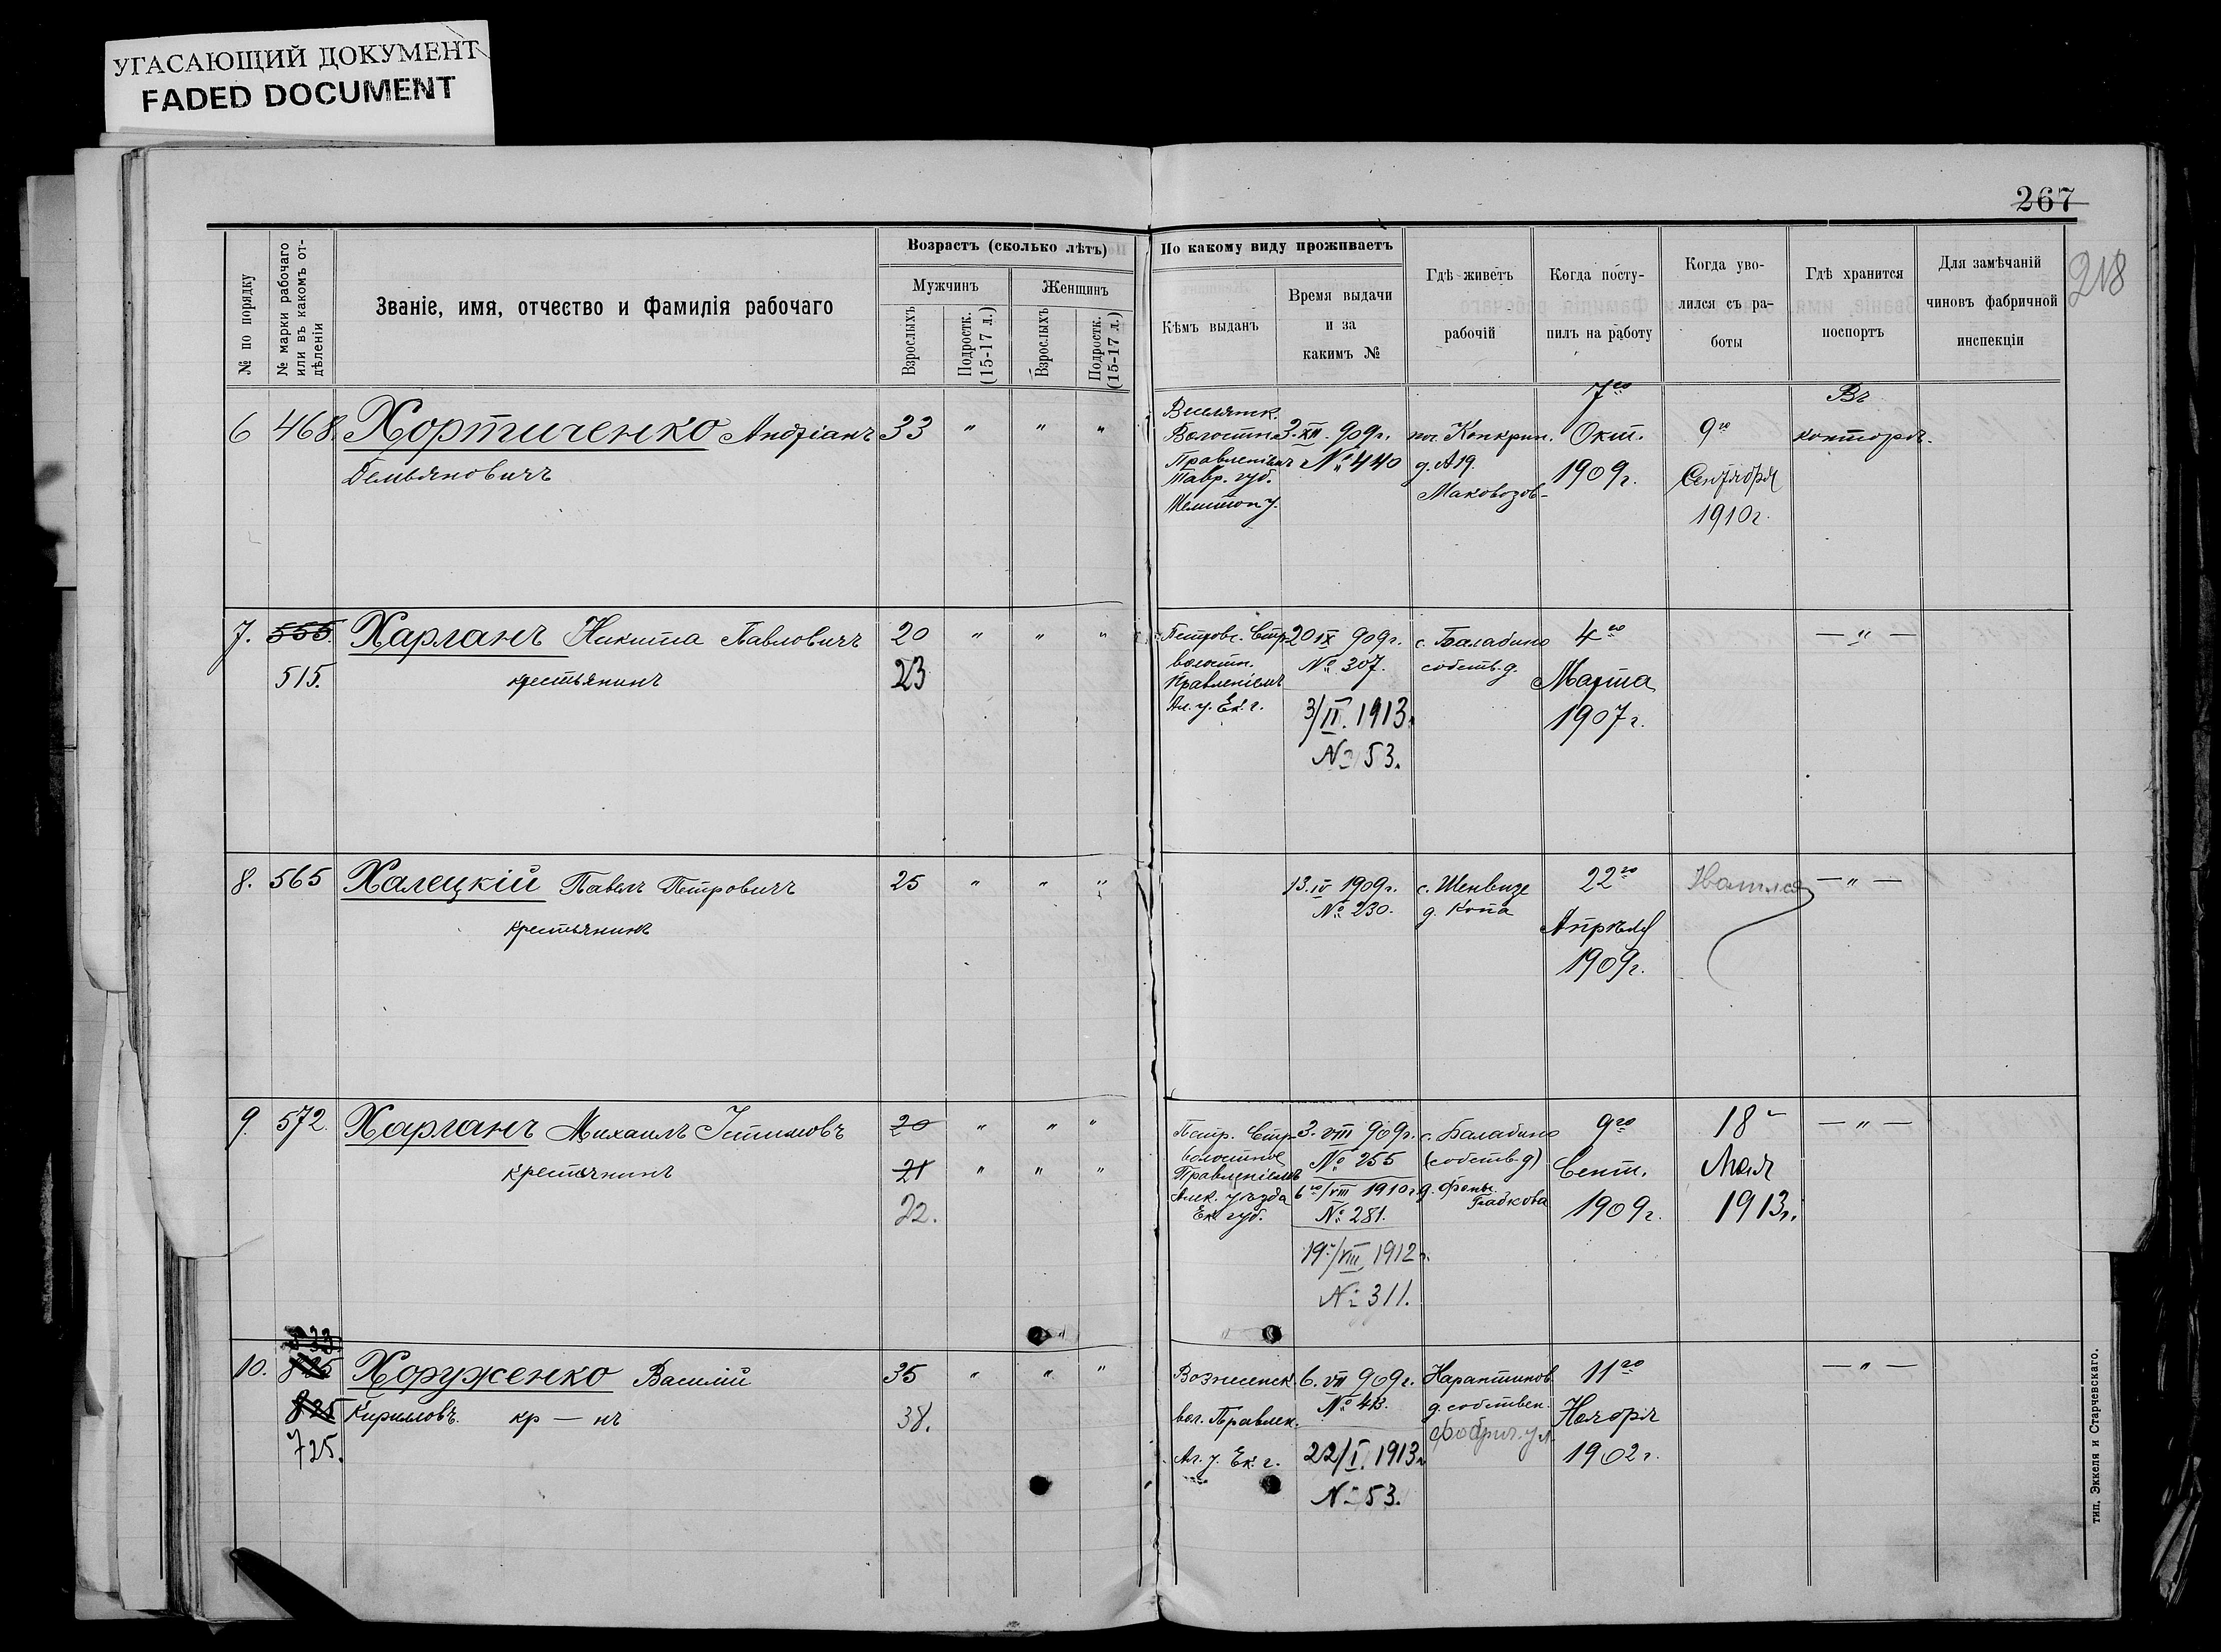 УГАСАЮЩИЙ ДОКУМЕНТ
FADED DOCUMENT
267
218
№ по порядку
№ марки рабочаго
или въ какомъ от-
дѣленіи
Званіе, имя, отчество и фамилія рабочаго
Возрастъ (сколько лѣтъ)
Мужчинъ
Женщинъ
Взрослыхъ
Подростк.
(15-17 л.)
Взрослыхъ
Подростк.
(15-17 л.)
По какому виду проживаетъ
Кѣмъ выданъ
Время выдачи
и за
какимъ №
Гдѣ живетъ
рабочій
Когда посту-
пилъ на работу
Когда уво-
лился съ ра-
боты
Гдѣ хранится
поспортъ
Для замѣчаній
чиновъ фабричной
инспекціи
6 468. Хортиченко Андріанъ 33 " " "
Демьяновичъ
Волостн.
Правленіемъ
Тавр. губ.
Мелитоп у.
3.XII. 909 г.
№ 440
д. А19.
7го
Окт.
1909 г.
9го
Сентября
1910 г.
Въ
конторѣ.
7. 555. Харланъ Никита Павловичъ 20 " " "
515. крестьянинъ 23
Петровс. Стр.
волостн.
Правленіемъ
Ал. у. Ек. г.
20 IX 909 г.
№ 307.
3/II. 1913 г.
№ 53.
с. Балабино
собств. д.
4го
Марта
1907 г.
— " —
8. 565 Халецкій Павелъ Петровичъ 25 " " "
крестьянинъ
13. IV 1909 г.
№ 230.
с. Шенвизе
д. Копа
22го
Апрѣля
1909 г.
— " —
9. 572. Харланъ Михаилъ 20 " " "
крестьянинъ 21 " " "
22.
Петр. Стр.
волостное
Правленіемъ
Алек. уѣзда
Ек. губ.
3. VIII 909 г.
№ 255
6го/VIII 1910 г.
№ 281.
19/VIII 1912 г.
№ 311.
с. Балабино
(собств. д)
д. Фомы
9го
Сент.
1909 г.
18
Мая
1913 г.
— " —
10. 835 Хоруженко Василій 35 " " "
825 Кириловъ. кр — нъ 38.
725.
Вознесенск
вол. Правлен.
Ал. у. Ек. г.
6. VII 909 г.
№ 413.
22/I. 1913 г.
№ 53.
д. собствен.
Фабрич. ул.
11го
Ноября
1902 г.
— " —
тип. Эккеля и Старчевскаго.